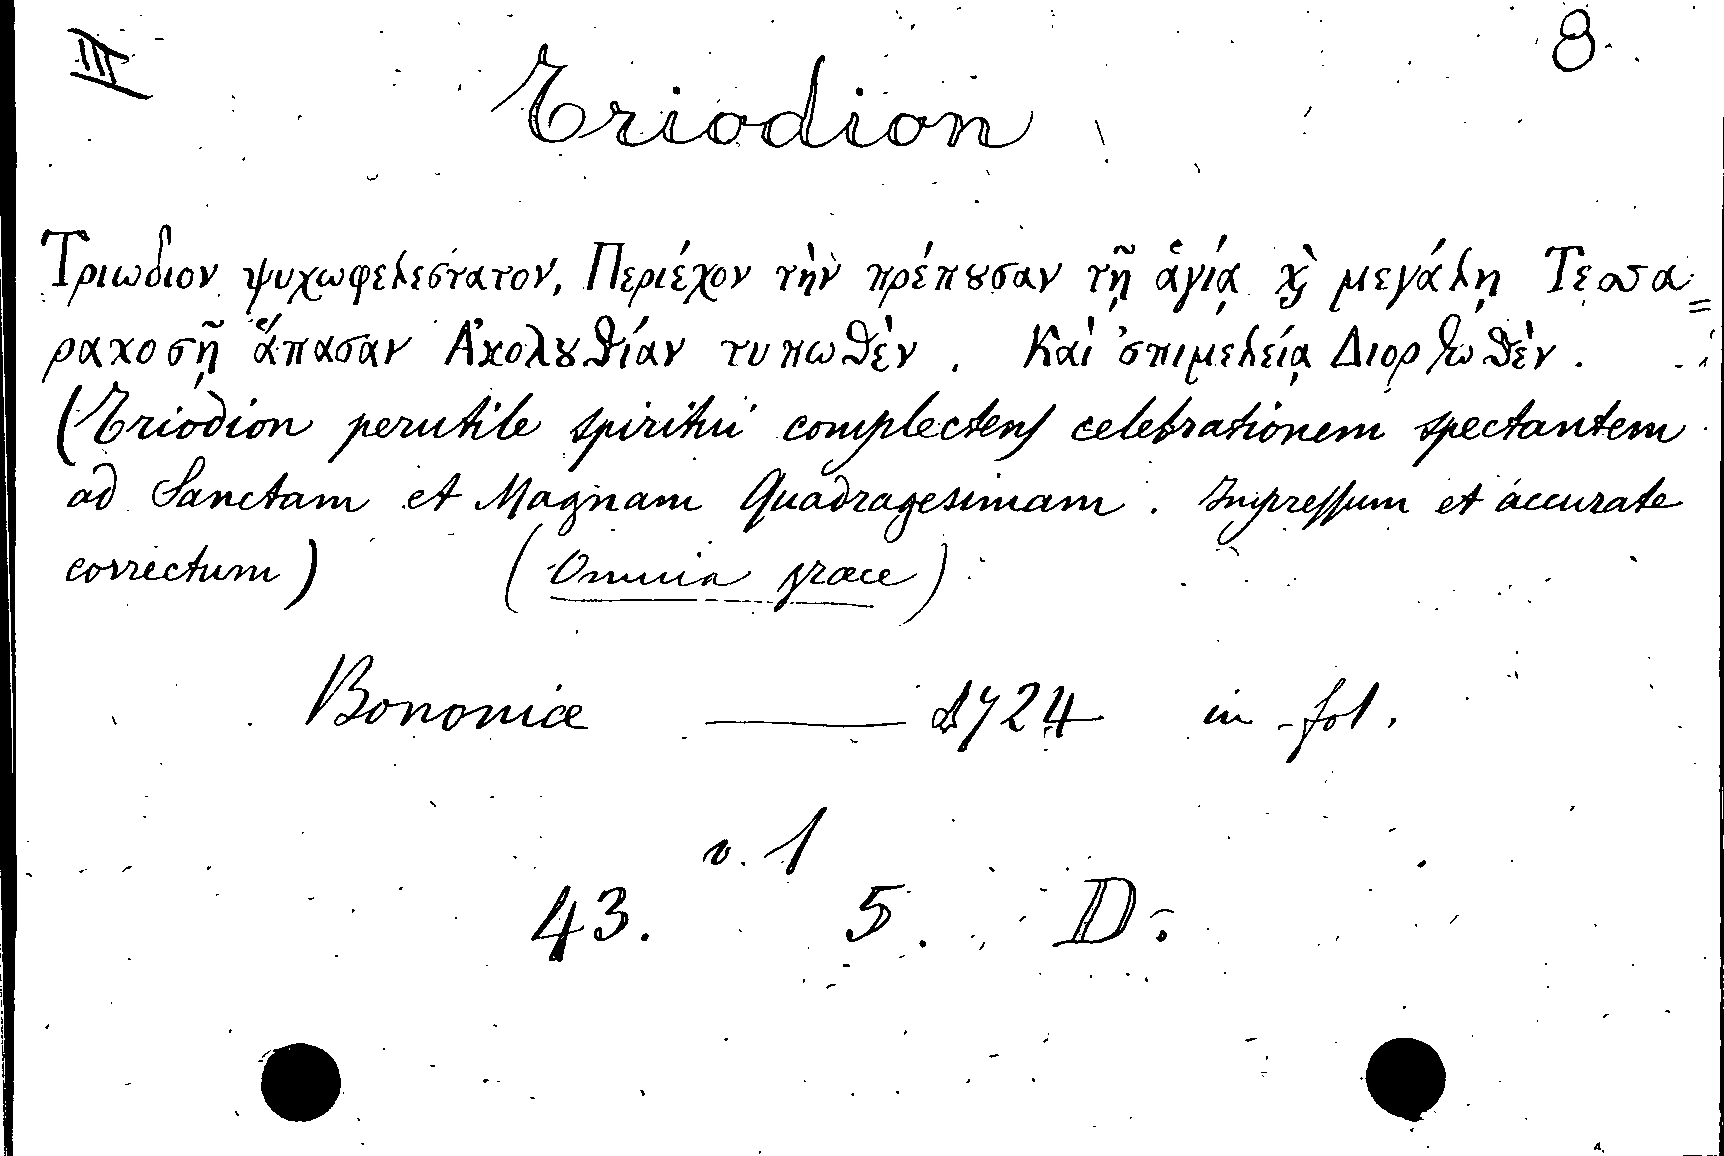 III 8.
Triodion
Τριωδιον ψυχωφελεστατον, Περιέχον τὴν πρέπȣσαν τῇ ἁγίᾳ ϗ̀ μεγάλη Τεσσα=
ρακοσῇ ἅπασαν Ἀκολȣθίαν τυπωθὲν. Καὶ ἐπιμελείᾳ Διορθωθὲν.
(Triodion perutile spiritui complectens celebrationem spectantem
ad Sanctam et Magnam Quadragesimam. Impressum et accurate
correctum) (Omnia græce)
Bononiæ — 1724 in-fol.
v. 1
43. 5. D.